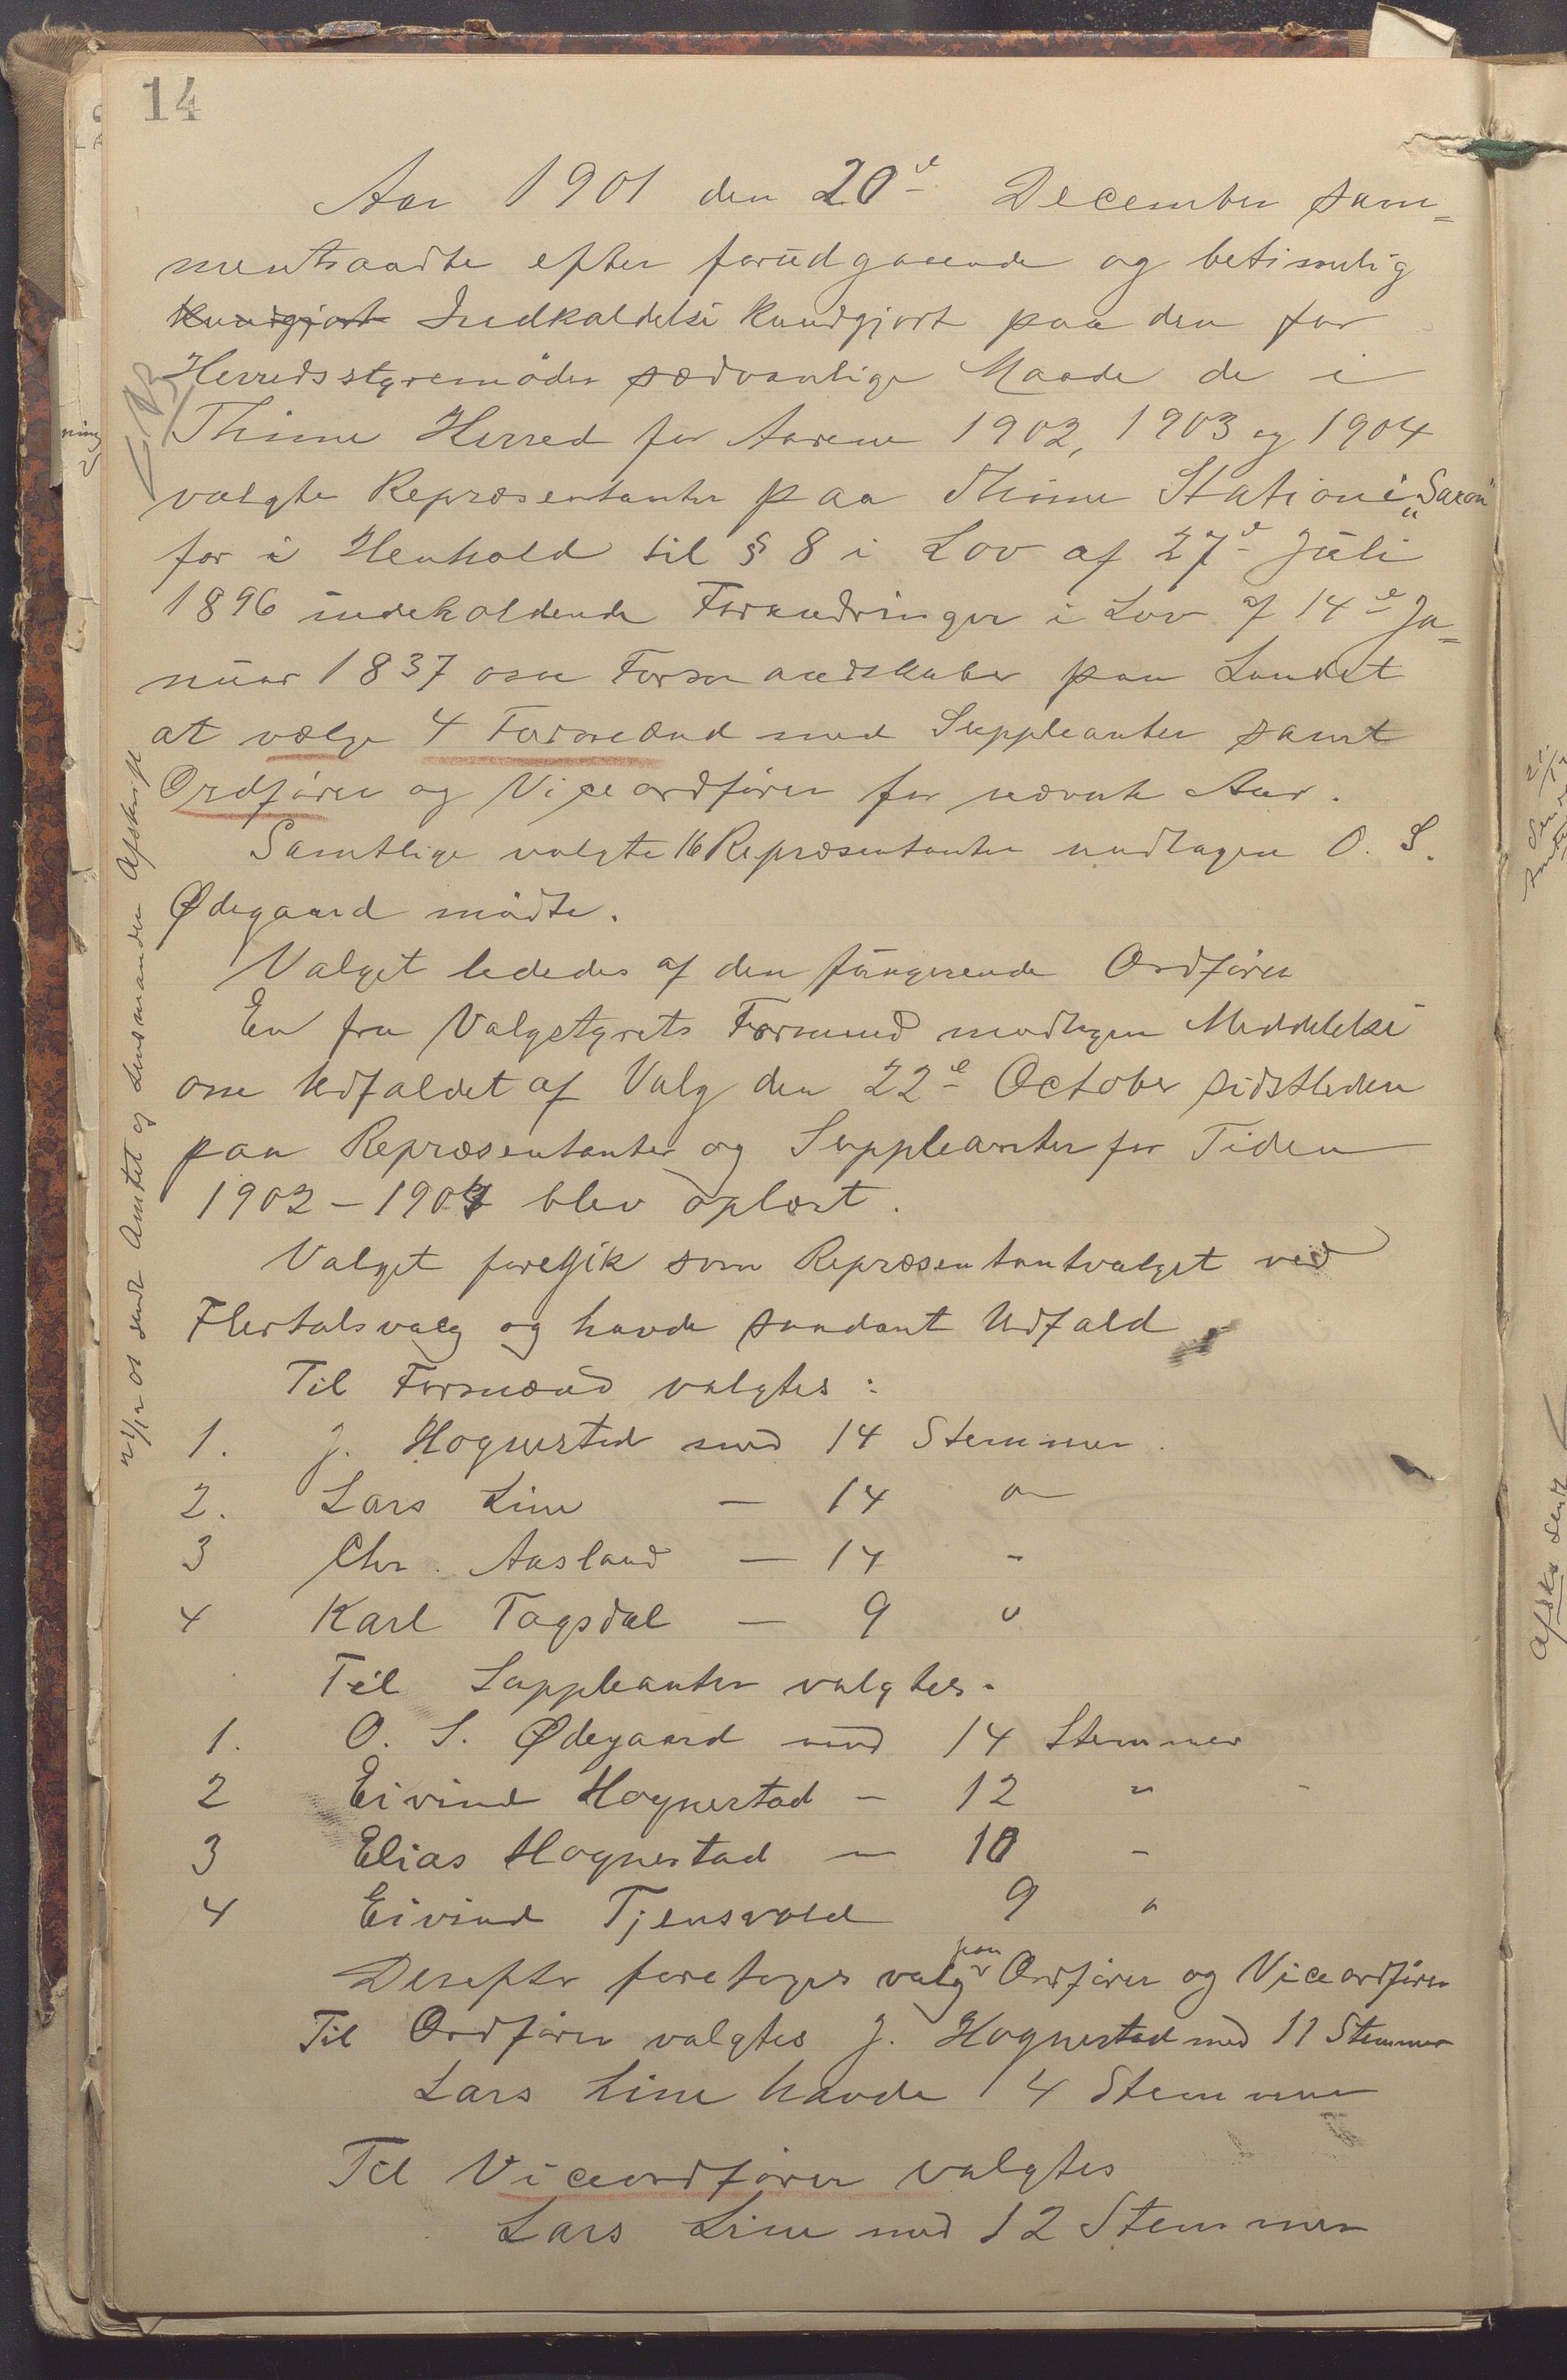 14
Aar 1901 den 20de December sam=
mentraadte efter forudgaaende og betimelig
Kundgjort Indkaldelse kundgjort paa den for
Herredsstyremöder sædvanlige Maade de i
Thime Herred for Aarene 1902, 1903 og 1904
valgte Repræsentanter paa Thime Station i „Saron"
for i Henhold til § 8 i Lov af 27de Juli
1896 indeholdende Forandringer i Lov af 14de Ja=
nuar 1837 om Formandskaber paa Landet
at vælge 4 Formænd med Suppleanter samt
Ordförer og Viceordförer for nævnte Aar.
Samtlige valgte 16 Repræsentanter undtagen O. S.
Ødegaard mödte.
Valget lededes af den fungerende Ordförer
En fra Valgstyrets Formand modtagen Meddelelse
om Udfaldet af Valg den 22de October sidstleden
paa Repræsentanter og Suppleanter for Tiden
1902 – 1904 blev oplæst.
Valget foregik som Repræsentantvalget ved
Flertalsvalg og havde saadant Udfald
Til Formænd valgtes:
1. J. Hognestad med 14 Stemmer.
2. Lars Lime — 14 "
3 Chr. Aasland — 14 "
4 Karl Tagsdal — 9 "
Til Suppleanter valgtes.
1. O. S. Ødegaard med 14 Stemmer
2 Eivind Hognestad – 12 "
3 Elias Hognestad – 10 "
4 Eivind Tjensvold 9 "
Derefter foretoges valg paa Ordförer og Viceordförer
Til Ordförer valgtes J. Hognestad med 11 Stemmer
Lars Lime havde 4 Stemmer
Til Viceordförer valgtes
Lars Lime med 12 Stemmer
21/12 01 sendt Amtet og Lensmanden Afskrift
Afskr sendt